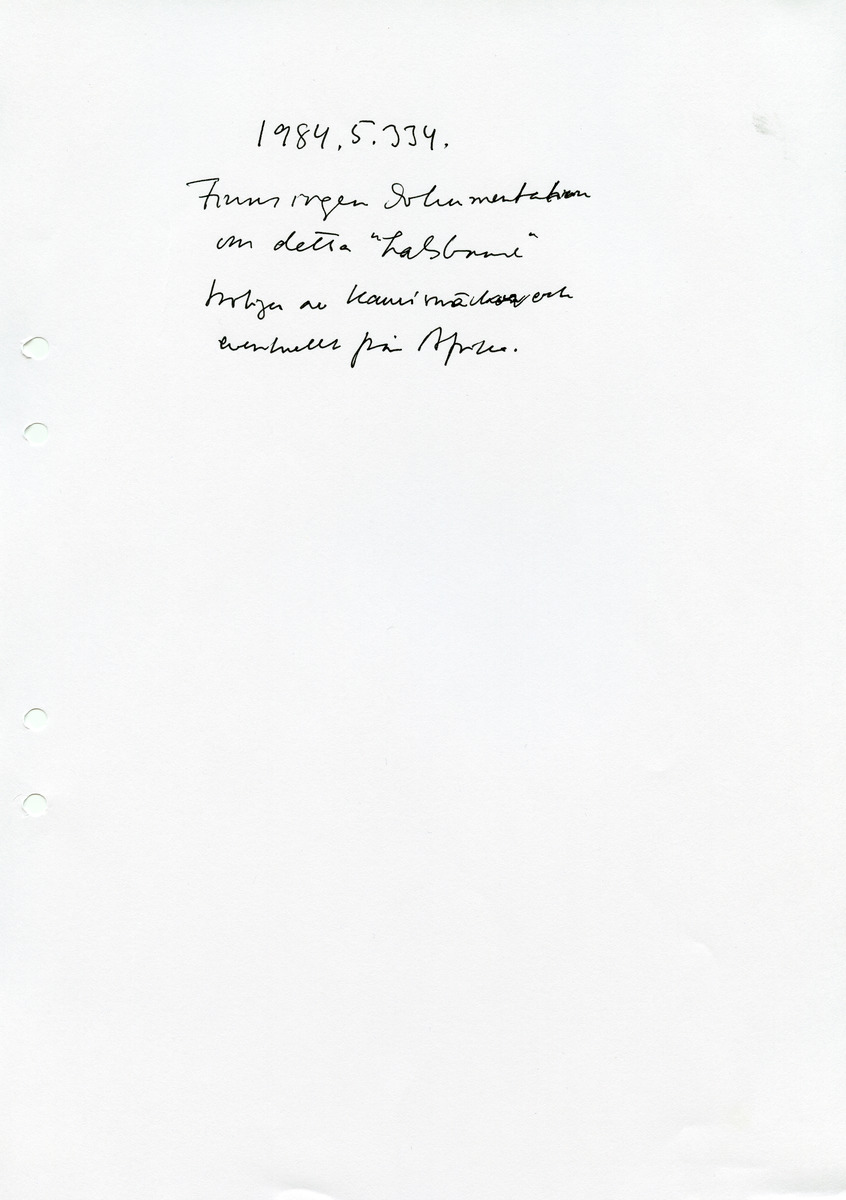 1984.5.334.
Finns ingen dokumentation
om detta "halsband"
troligen av kaurisnäckor och
eventuellt från Afrika.